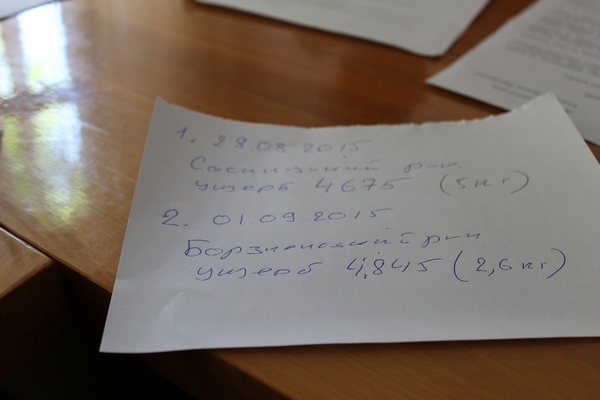 1. 28.08 2015
Соснинский р-н.
ущерб 4675 (5 кг)
2. 01.09 2015
Борзнянский р-н
ущерб 4,845 (2,6 кг)